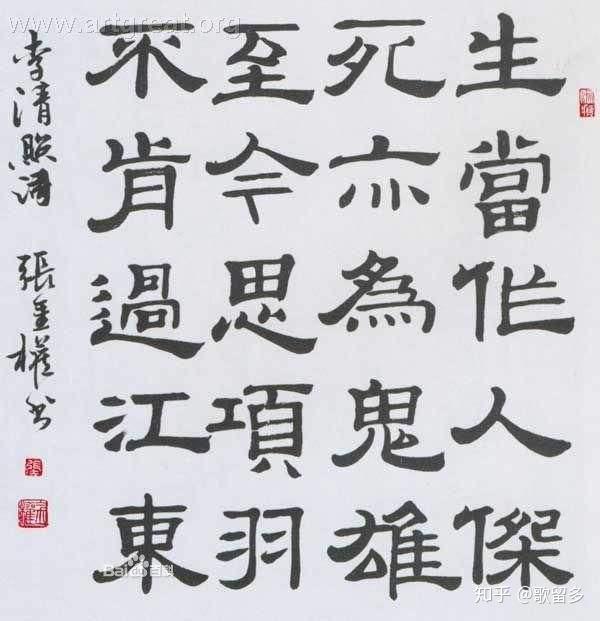 生當作人傑
死亦為鬼雄
至今思項羽
不肯過江東
李清照詩 張權书
www.artgreat.org
Bai百科
知乎 @歌留多